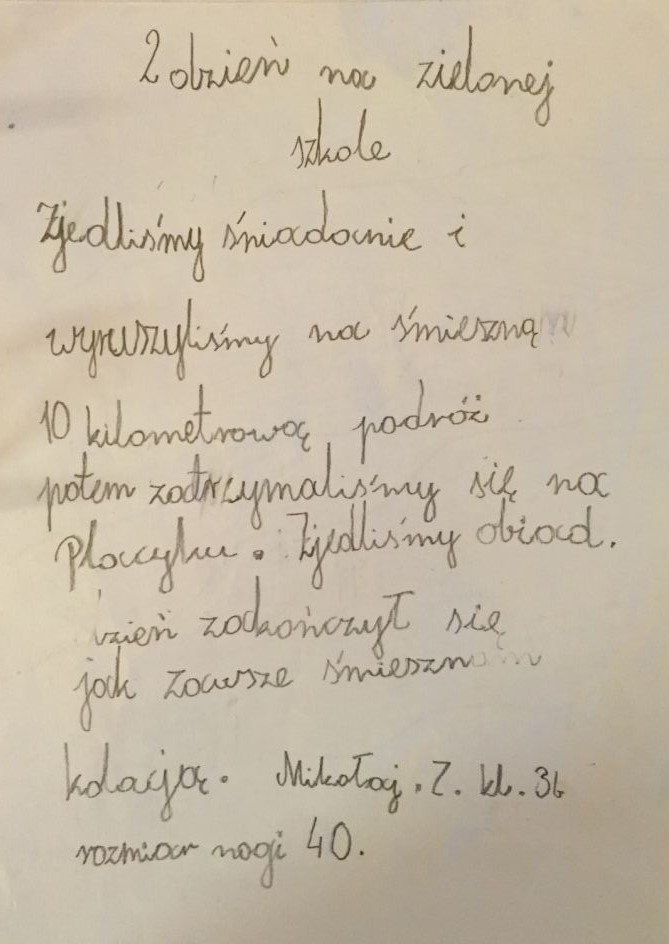 2 dzień na zielonej
szkole
Zjedliśmy śniadanie i
wyruszyliśmy na śmieszną
10 kilometrową podróż
potem zatrzymaliśmy się na
Placyku. Zjedliśmy obiad.
dzień zakończył się
jak zawsze śmieszną
kolacją. Mikołaj. Z. kl. 3b
rozmiar nogi 40.